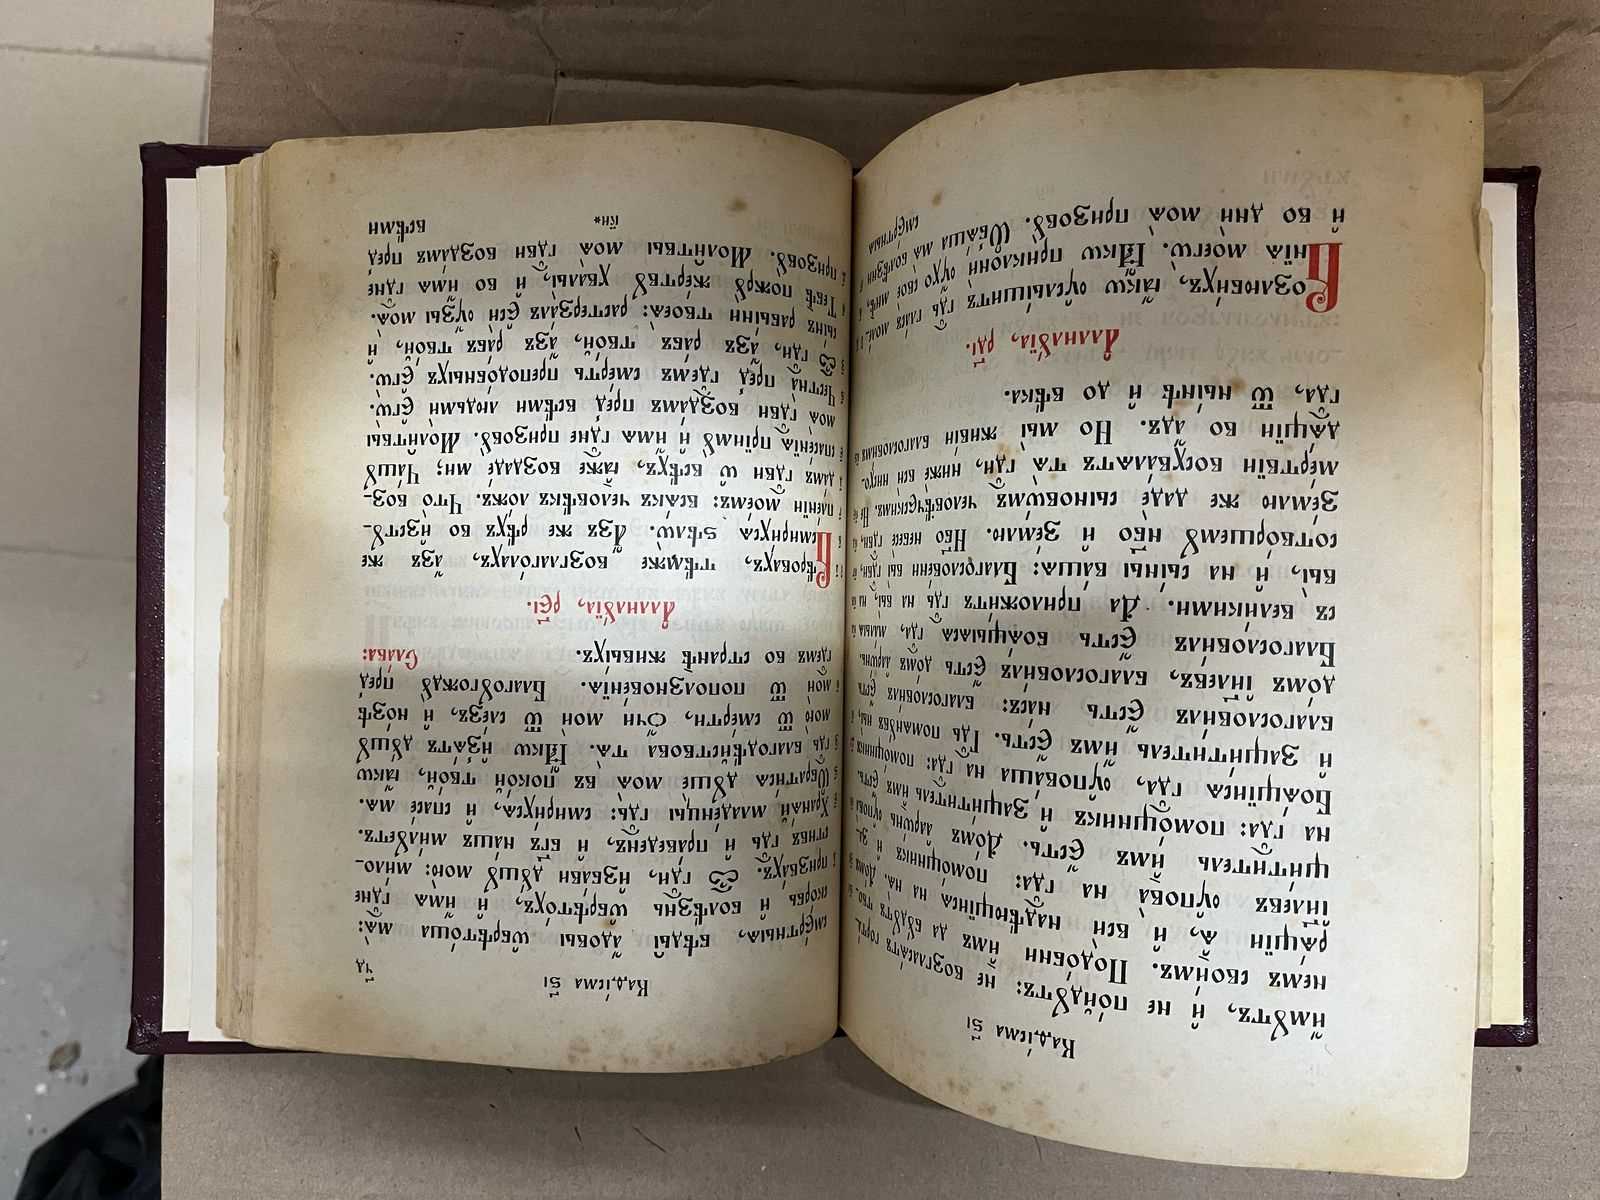 Каѳі́сма ѕ҃і
и҆́мꙋтъ, и҆ не по́йдꙋтъ: не возгласѧ́тъ горта́-
немъ свои́мъ. Подо́бни и҆̀мъ да бꙋ́дꙋтъ тво-
рѧ́щїи ѧ҆̀, и҆ всѝ надѣ́ющїисѧ на нѧ̀. До́мъ
і҆и҃левъ ᲂу҆пова̀ на гдⷭ҇а: помо́щникъ и҆ За-
щи́титель и҆̀мъ є҆́сть. До́мъ а҆арѡ́нь ᲂу҆пова̀
на гдⷭ҇а: помо́щникъ и҆ Защи́титель и҆̀мъ є҆́сть.
Боѧ́щїисѧ гдⷭ҇а, ᲂу҆пова́ша на гдⷭ҇а: помо́щникъ
и҆ Защи́титель и҆̀мъ є҆́сть. Гдⷭ҇ь помѧнꙋ́въ ны̀,
благослови́лъ є҆́сть на́съ: благослови́лъ є҆́сть
до́мъ і҆и҃левъ, благослови́лъ є҆́сть до́мъ а҆арѡ́нь.
Благослови́лъ є҆́сть боѧ́щыѧсѧ гдⷭ҇а, ма́лыѧ
съ вели́кими. Да приложи́тъ гдⷭ҇ь на вы̀, на
вы̀, и҆ на сы́ны ва́шѧ: Благослове́ни вы̀ гдⷭ҇ви,
сотво́ршемꙋ нб҃о и҆ зе́млю. Нб҃о небесѐ гдⷭ҇ви,
Зе́млю же дадѐ сыновѡ́мъ человѣ́ческимъ. Не
ме́ртвїи восхва́лѧтъ тѧ̀ гдⷭ҇и, ниже́ всѝ низхо-
дѧ́щїи во а҆́дъ. Но мы̀ живі́и благослови́мъ
гдⷭ҇а, ѿ ны́нѣ и҆ до вѣ́ка.
А҆ллилꙋ́їа, рд҃і.
Возлюби́хъ, ꙗ҆́кѡ ᲂу҆слы́шитъ гдⷭ҇ь гла́съ мол-
е́нїѧ моегѡ̀. Ꙗ҆́кѡ приклонѝ ᲂу҆́хо своѐ мнѣ̀,
и҆ во днѝ моѧ̀ призовꙋ̀. Ѡ҆б̾ѧ́ша мѧ̀ болѣ́зни
сме́ртныѧ
Каѳі́сма ѕ҃і
ч҃д
сме́ртныѧ, бѣды̀ а҆́довы ѡ҆брѣто́ша мѧ̀:
ско́рбь и҆ болѣ́знь ѡ҆брѣто́хъ, и҆ и҆́мѧ гдⷭ҇не
призва́хъ. Ѽ гдⷭ҇и, и҆зба́ви дꙋ́шꙋ мою̀: ми́ло-
стивъ гдⷭ҇ь и҆ пра́веденъ, и҆ бг҃ъ на́шъ ми́лꙋетъ.
Хранѧ́й младе́нцы гдⷭ҇ь: смири́хсѧ, и҆ спасе́ мѧ.
Ѡ҆брати́сѧ дꙋшѐ моѧ̀ въ поко́й тво́й, ꙗ҆́кѡ
гдⷭ҇ь благодѣ́йствова тѧ̀. Ꙗ҆́кѡ и҆з̾ѧ́тъ дꙋ́шꙋ
мою̀ ѿ сме́рти, ѻ҆́чи моѝ ѿ сле́зъ, и҆ но́зѣ
моѝ ѿ поползнове́нїѧ. Благоꙋгождꙋ̀ пред̾
гдⷭ҇емъ во странѣ̀ живы́хъ. Сла́ва:
А҆ллилꙋ́їа, рє҃і.
Вѣ́ровахъ, тѣ́мже возглаго́лахъ, а҆́зъ же
смири́хсѧ ѕѣлѡ̀. А҆́зъ же рѣ́хъ во и҆зстꙋ-
пле́нїи мое́мъ: всѧ́къ человѣ́къ ло́жъ. Что̀ воз-
да́мъ гдⷭ҇ви ѡ҆ всѣ́хъ, ꙗ҆̀же воздаде́ ми; Ча́шꙋ
спасе́нїѧ прїимꙋ̀ и҆ и҆́мѧ гдⷭ҇не призовꙋ̀. Моли́твы
моѧ̀ гдⷭ҇ви возда́мъ пред̾ всѣ́ми людьмѝ є҆гѡ̀.
Честна̀ пред̾ гдⷭ҇емъ сме́рть преподо́бныхъ є҆гѡ̀.
Ѽ гдⷭ҇и, а҆́зъ ра́бъ тво́й, а҆́зъ ра́бъ тво́й, и҆
сы́нъ рабы́ни твоеѧ̀: растерза́лъ є҆сѝ ᲂу҆́зы моѧ̀.
Тебѣ̀ пожрꙋ̀ же́ртвꙋ хвалы̀, и҆ во и҆́мѧ гдⷭ҇не
призовꙋ̀. Моли́твы моѧ̀ гдⷭ҇ви возда́мъ пред̾
всѣ́ми